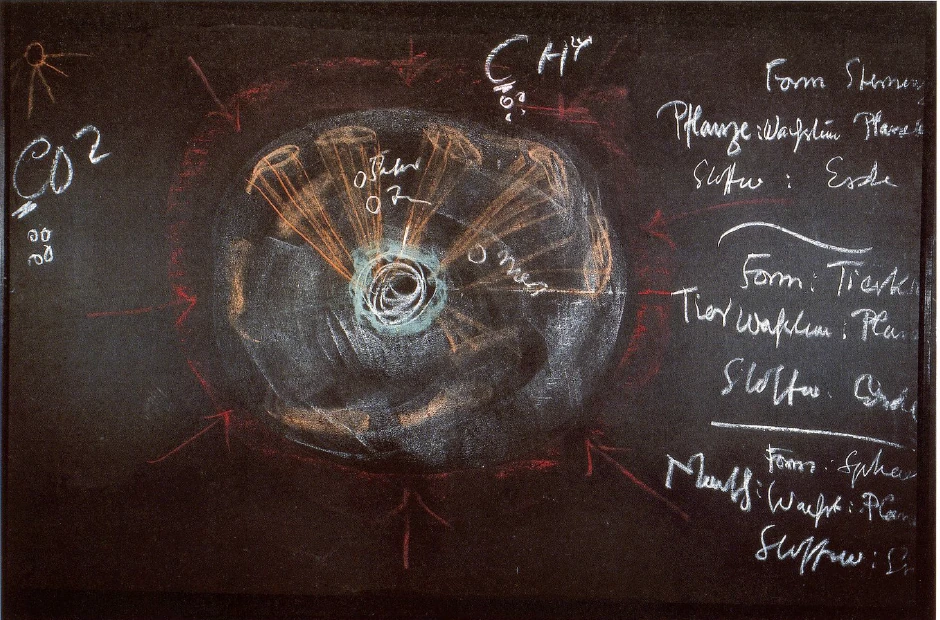 CO²
C H⁴
O Mars
Form Sternen
Pflanze: Wachstum Planet
Stoffw: Erde
Form: Tierk
Tier Wachstum: Plan
Stoffw. Erde
Form: Sphä
Mensch: Wachst: Plan
Stoffw: